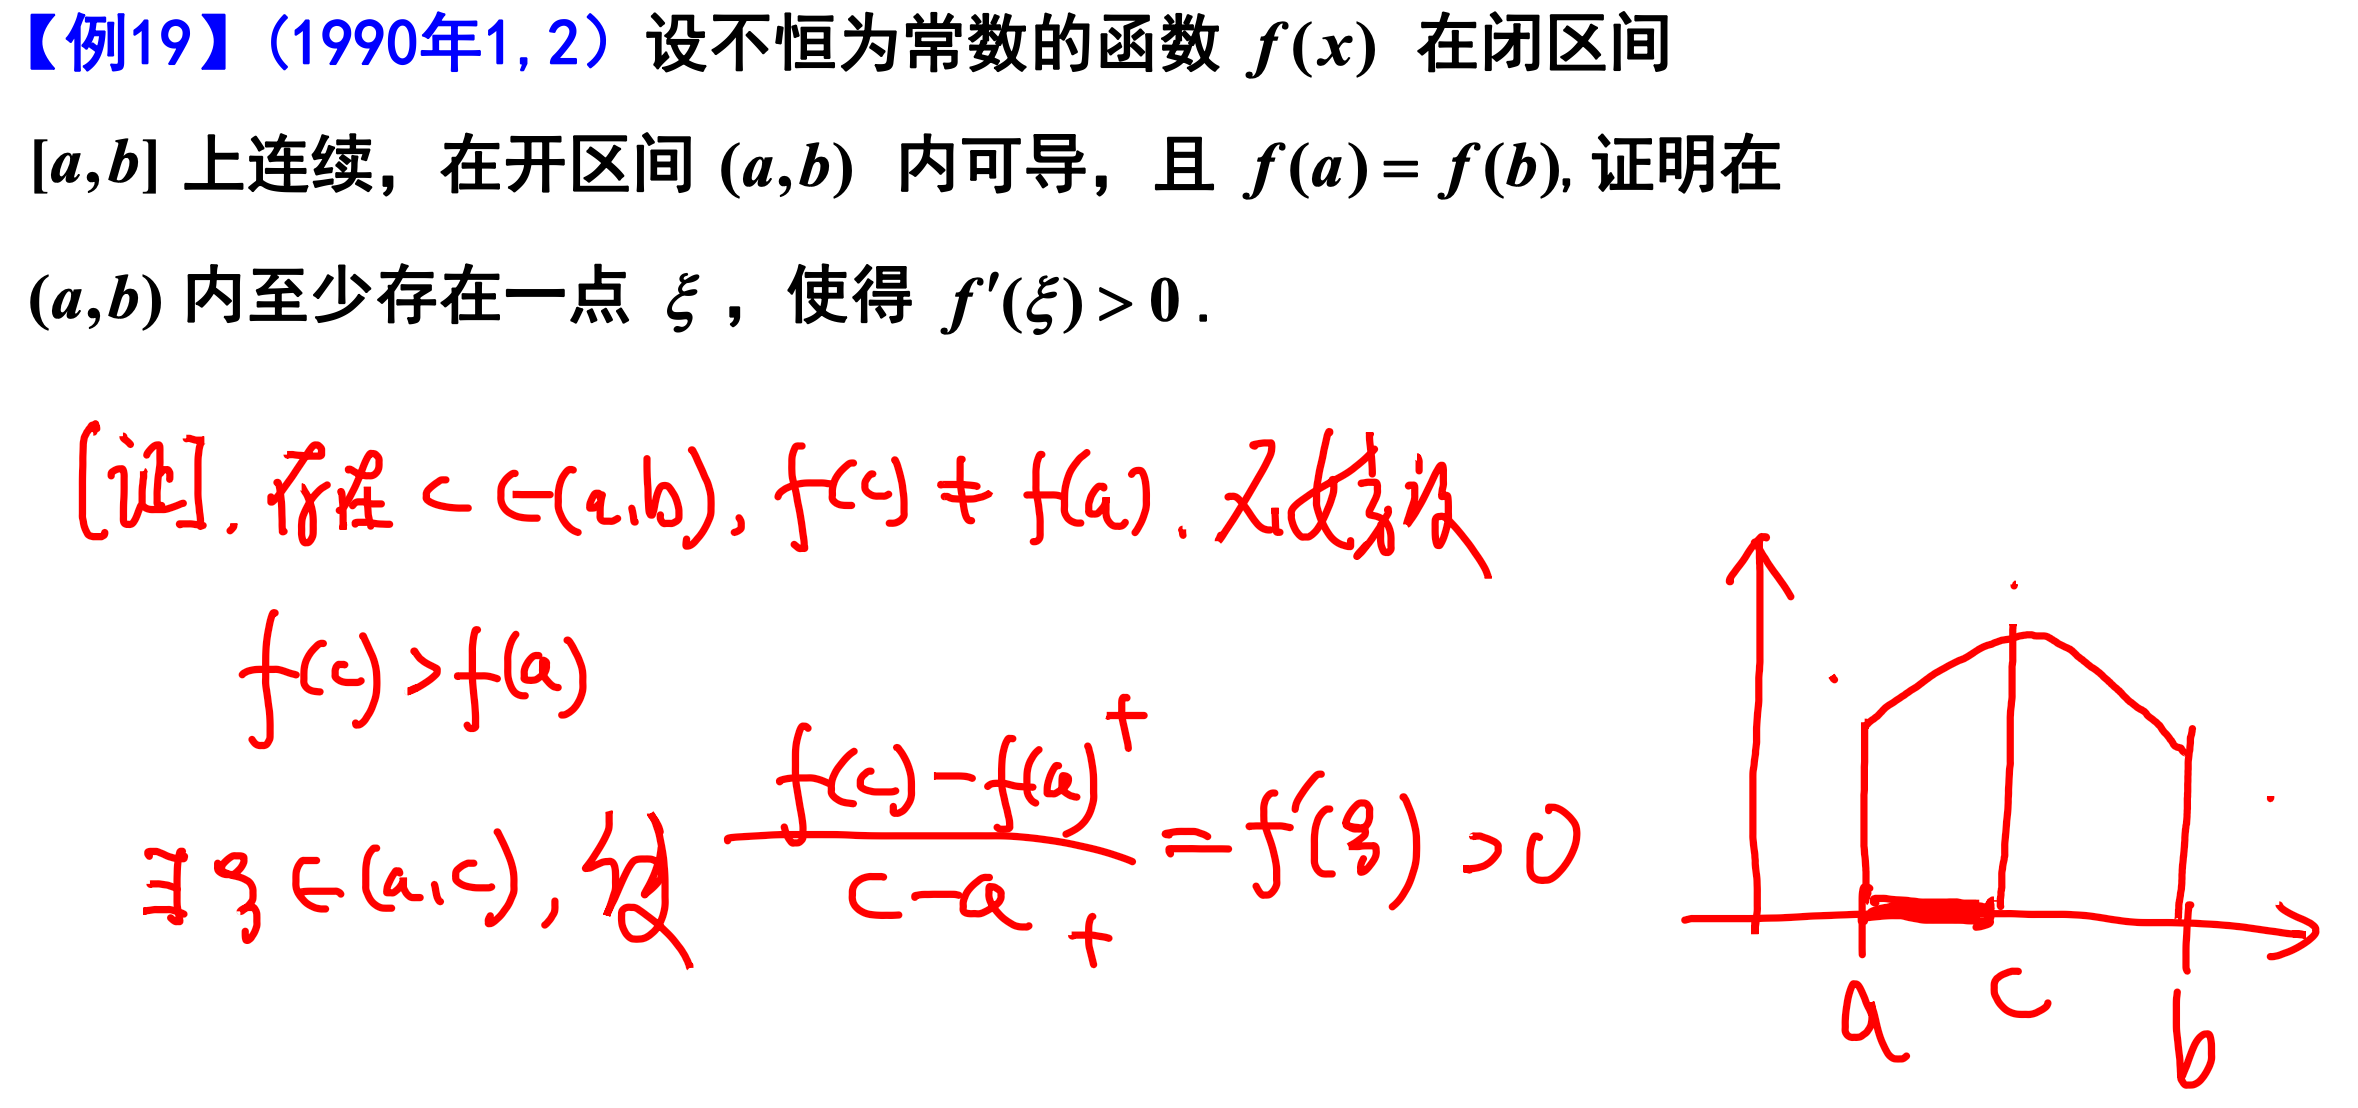 【例19】(1990年1,2) 设不恒为常数的函数 f(x) 在闭区间
[a,b] 上连续，在开区间 (a,b) 内可导，且 f(a) = f(b), 证明在
(a,b) 内至少存在一点 ξ ，使得 f′(ξ) > 0 .
[证]. 存在 c ∈ (a,b), f(c) ≠ f(a). 不妨设
f(c) > f(a)
∃ ξ ∈ (a,c), 使 (f(c) - f(a))⁺ / (c - a)₊ = f′(ξ) > 0
a c b